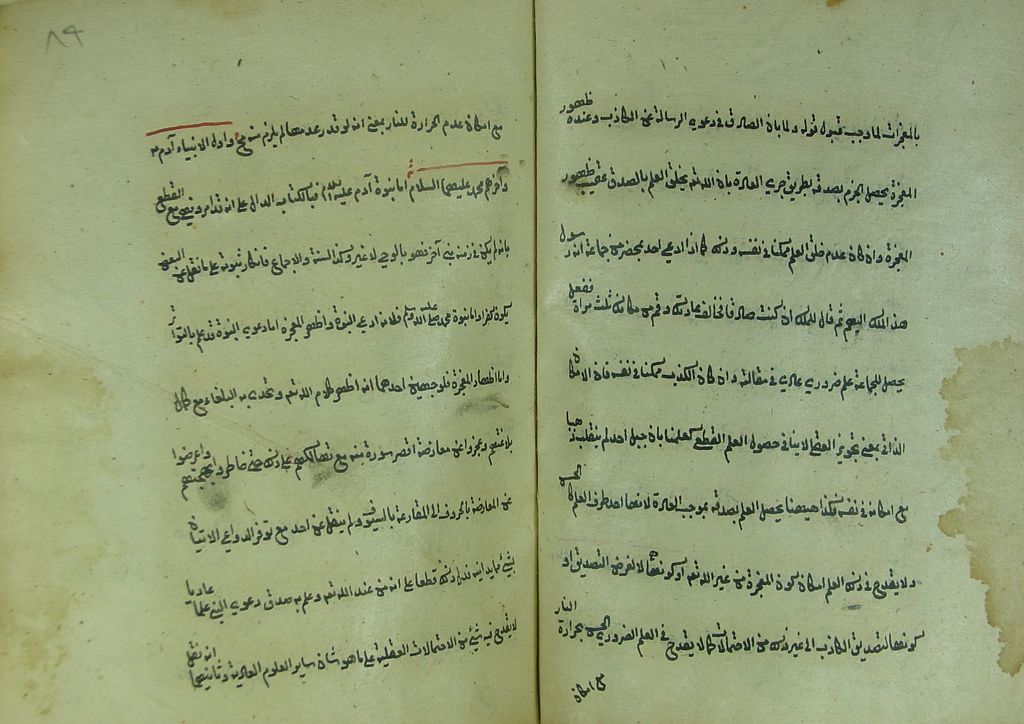 بالمعجزات لما وجب قبول قوله ولما بان الصادق في دعوى الرسالة عن الكاذب وعند ظهور
المعجزة يحصل الجزم بصدقه بطريق جري العادة بان الله تع يخلق العلم بالصدق عقيب ظهور
المعجزة وان كان عدم خلق العلم ممكنا في نفسه وذلك كما اذا ادعى احد بمحضر من جماعة انه رسول
هذا الملك اليهم ثم قال للملك ان كنت صادقا فخالف عادتك وقم من مكانك ثلث مرات ففعل
يحصل للجماعة علم ضروري عادي في مقالته وان كان الكذب ممكنا في نفسه فان الامكان
الذاتي بمعنى تجويز العقلي لا ينافي حصول العلم القطعي كعلمنا بان جبل احد لم ينقلب ذهبا
مع امكانه في نفسه فكذا ههنا يحصل العلم بصدقه بموجب العادة لانها احد طرق العلم كالحس
ولا يقدح في ذلك العلم امكان كون المعجزة من غير الله تع او كونها لا لغرض التصديق او
كونها لتصديق الكاذب الى غير ذلك من الاحتمالات كما لا يقدح في العلم الضروري الحسي بحرارة النار
مع امكان
٨٩
مع امكان عدم الحرارة للنار بمعنى انه لو قدر عدمها لم يلزم منه مح واول الانبياء آدم ع
وآخرهم محمد عليهما السلام اما نبوة آدم عليه السلام فبالكتاب الدال على انه قد امر ونهي مع القطع
بانه لم يكن في زمنه نبي آخر فهو بالوحي لا غير وكذا السنة والاجماع فانكار نبوته على ما نقل عن البعض
يكون كفرا واما نبوة محمد صلى الله عليه وسلم فلانه ادعى النبوة واظهر المعجزة اما دعوى النبوة فقد علم بالتواتر
واما اظهار المعجزة فلوجهين احدهما انه اظهر كلام الله تع وتحدى به البلغاء مع كمال
بلاغتهم وعجزوا عن معارضة اقصر سورة منه مع تهالكهم على ذلك حتى خاطروا بمهجتهم واعرضوا
عن المعارضة بالحروف الى المقارعة بالسيوف ولم ينقل عن احد مع توفر الدواعي الاتيان
بشيء مما يدانيه فدل ذلك قطعا على انه من عند الله تع وعلم به صدق دعوى النبي علما عاديا
لا يقدح فيه شيء من الاحتمالات العقلية على ما هو شان ساير العلوم العادية وثانيهما انه نقل